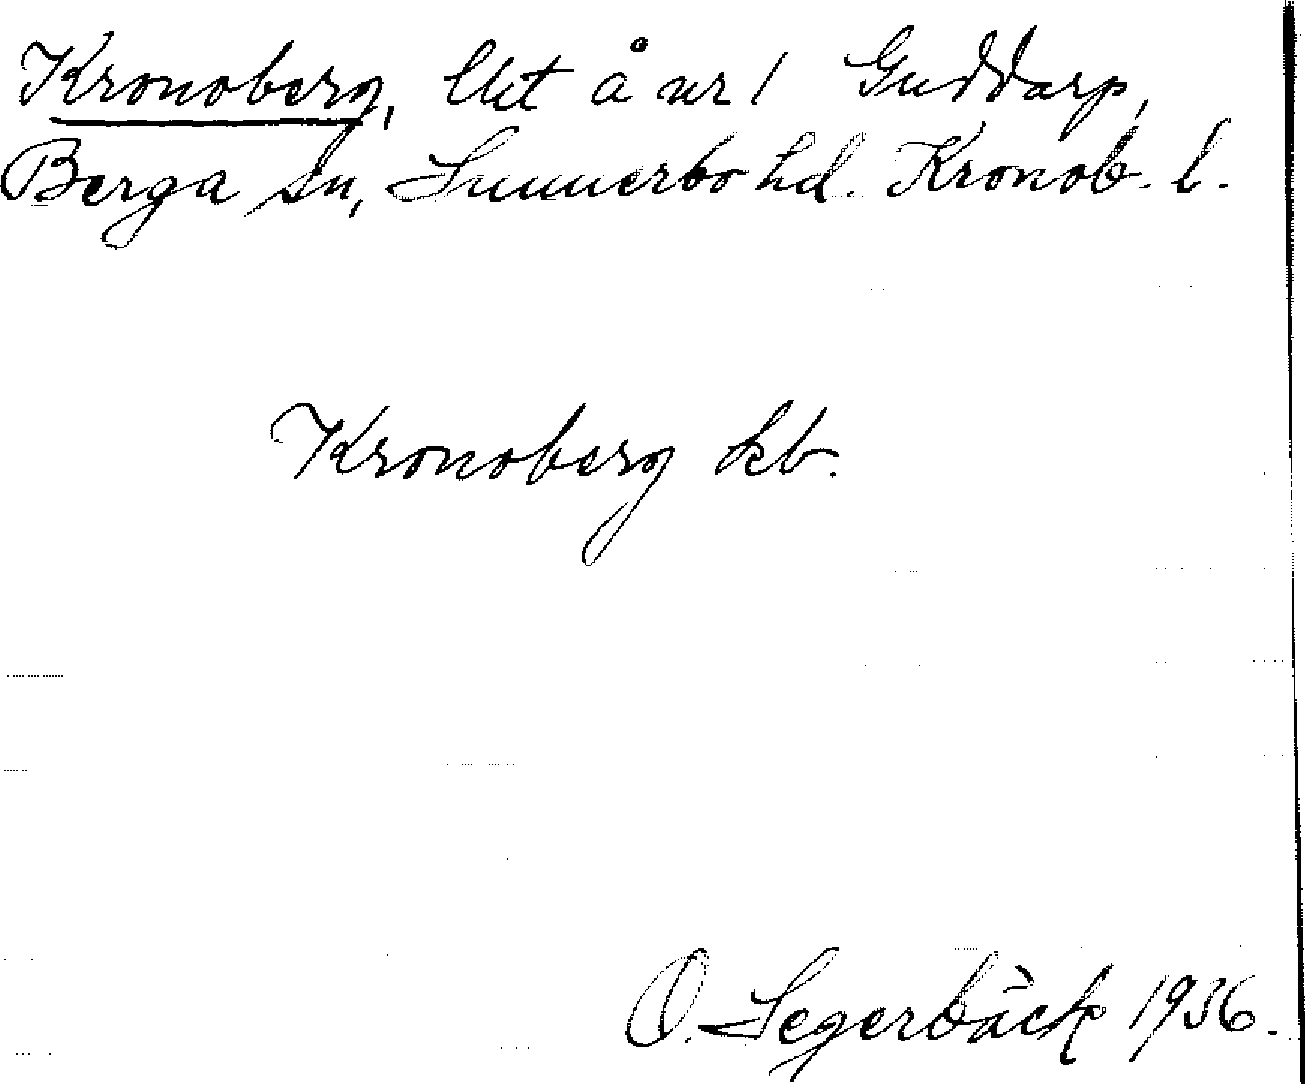 Kronoberg, lht å nr 1 Guddarp,
Berga sn, Sunnerbo hd. Kronob. l.
Kronoberg kb.
O. Segerbäck 1936.